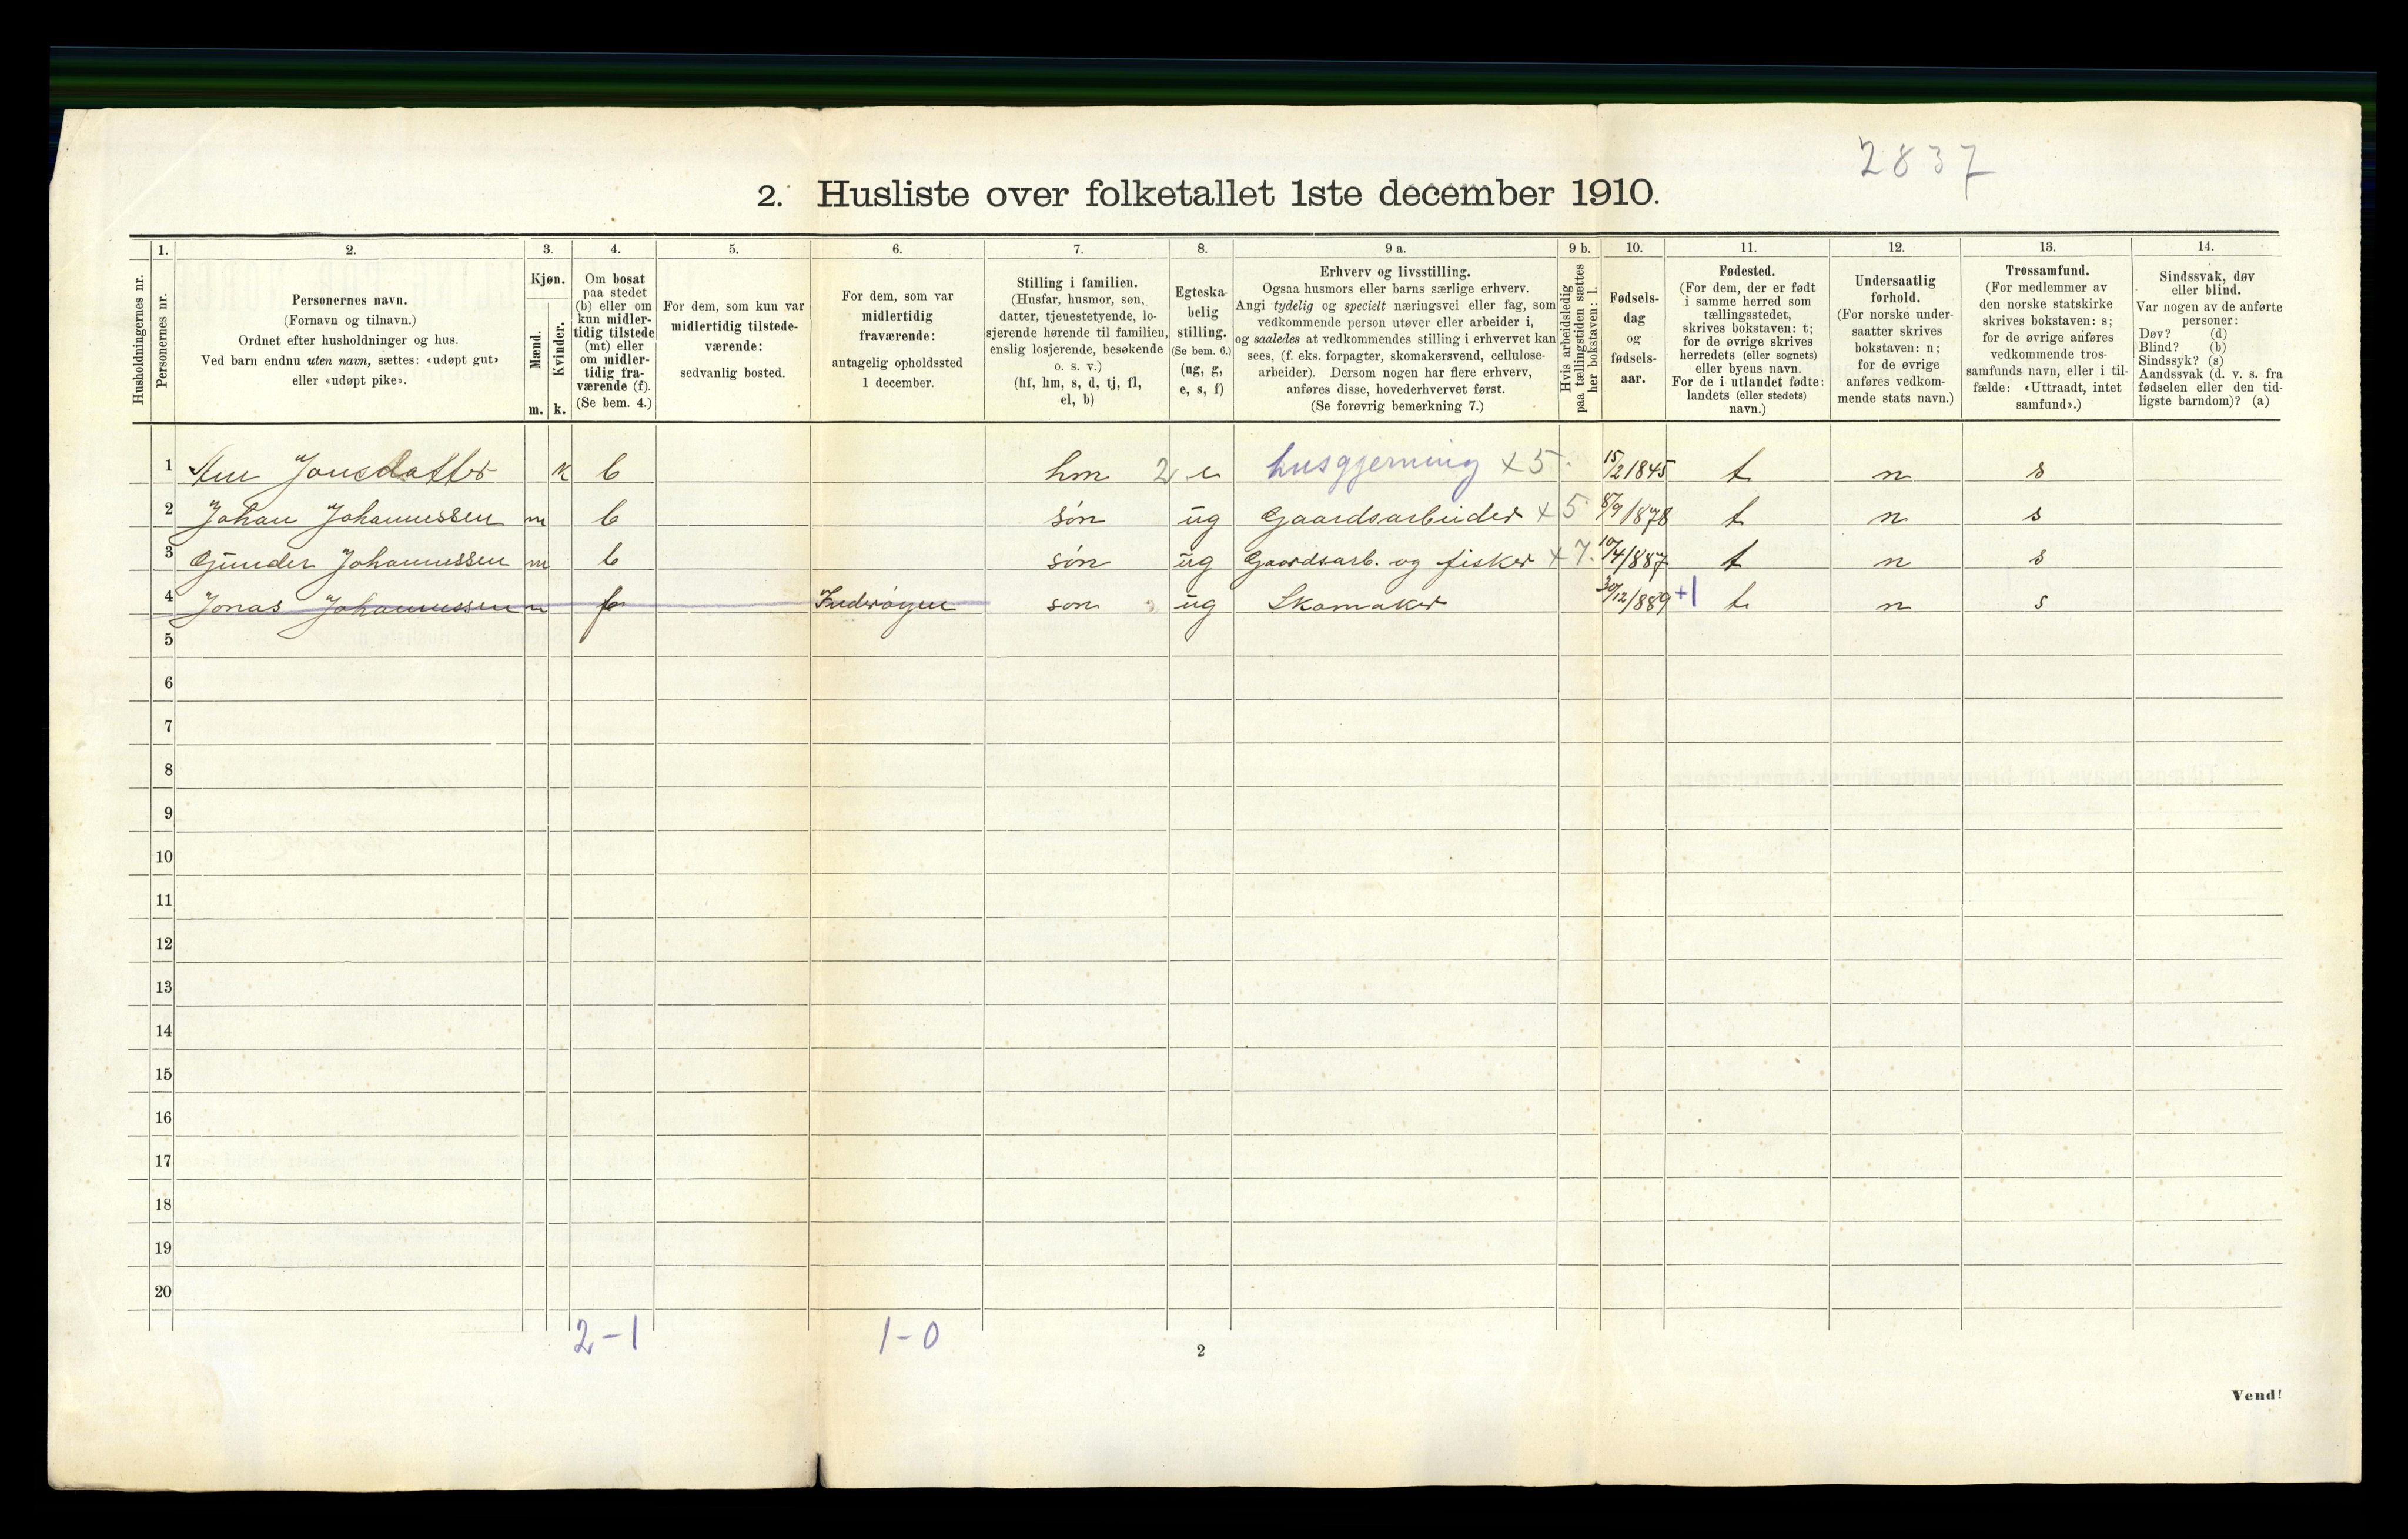 2837
2. Husliste over folketallet 1ste december 1910.
Husholdningernes nr.
1.
Personernes nr.
2.
Personernes navn.
(Fornavn og tilnavn.)
Ordnet efter husholdninger og hus.
Ved barn endnu uten navn, sættes: «udøpt gut»
eller «udøpt pike».
3.
Kjøn.
Mænd.
Kvinder.
m. k.
4.
Om bosat
paa stedet
(b) eller om
kun midler-
tidig tilstede
(mt) eller
om midler-
tidig fra-
værende (f).
(Se bem. 4.)
5.
For dem, som kun var
midlertidig tilstede-
værende:
sedvanlig bosted.
6.
For dem, som var
midlertidig
fraværende:
antagelig opholdssted
1 december.
7.
Stilling i familien.
(Husfar, husmor, søn,
datter, tjenestetyende, lo-
sjerende hørende til familien,
enslig losjerende, besøkende
o. s. v.)
(hf, hm, s, d, tj, fl,
el, b)
8.
Egteska-
belig
stilling.
(Se bem. 6.)
(ug, g,
e, s, f)
9 a.
Erhverv og livsstilling.
Ogsaa husmors eller barns særlige erhverv.
Angi tydelig og specielt næringsvei eller fag, som
vedkommende person utøver eller arbeider i,
og saaledes at vedkommendes stilling i erhvervet kan
sees, (f. eks. forpagter, skomakersvend, cellulose-
arbeider). Dersom nogen har flere erhverv,
anføres disse, hovederhvervet først.
(Se forøvrig bemerkning 7.)
9 b.
Hvis arbeidsledig
paa tællingstiden sættes
her bokstaven: l.
10.
Fødsels-
dag
og
fødsels-
aar.
11.
Fødested.
(For dem, der er født
i samme herred som
tællingsstedet,
skrives bokstaven: t;
for de øvrige skrives
herredets (eller sognets)
eller byens navn.
For de i utlandet fødte:
landets (eller stedets)
navn.)
12.
Undersaatlig
forhold.
(For norske under-
saatter skrives
bokstaven: n;
for de øvrige
anføres vedkom-
mende stats navn.)
13.
Trossamfund.
(For medlemmer av
den norske statskirke
skrives bokstaven: s;
for de øvrige anføres
vedkommende tros-
samfunds navn, eller i til-
fælde: «Uttraadt, intet
samfund».)
14.
Sindssvak, døv
eller blind.
Var nogen av de anførte
personer:
Døv? (d)
Blind? (b)
Sindssyk? (s)
Aandssvak (d. v. s. fra
fødselen eller den tid-
ligste barndom)? (a)
1 Jonsdatter k b hm 2 e husgjerning x 5 15/2 1845 t n s
2 Johan Johannessen m b søn ug Gaardsarbeider x 5 8/9 1878 t n s
3 Gunder Johannessen m b søn ug Gaardsarb. og fisker x 7. 10/4 1887 t n s
4 Jonas Johannessen m f Inderøyen søn ug Skomaker 30/12 1889 +1 t n s
5
6
7
8
9
10
11
12
13
14
15
16
17
18
19
20
2-1 1-0
2
Vend!